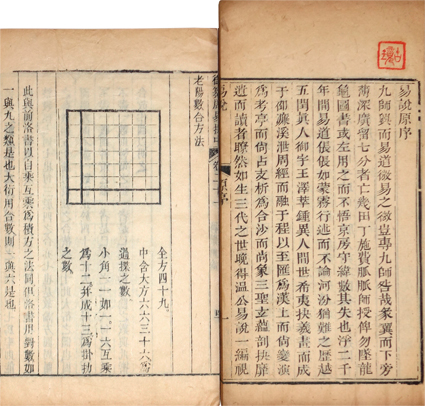 易說原序
九師興而易道微易之微豈專九師咎哉彖翼而下旁
薄深廣實七分者亡幾田丁施費脈脈師授俾勿墜龍
龜圖書或左用之而不悟京房守緯數其失也浮二千
年間易道倀倀如蒙霧行迷而不諭河汾猶難之歷越
五閏眞人御宇王澤莘鍾異人間世希夷抉羲畫而成
于邵濂溪泄周經而融于程以至匯爲漢上而倚變演
爲考亭而尚占支析爲合沙而尚象三聖玄蘊剖抉靡
遁而讀者瞭然如生三代之世晚得温公易說一編視
老陽數合方法
全方四十九
中含大方六六三十六為
過揲之數
小角一一如一一六互乘
為十二并成十三為掛扐
之數
此與前洛書以自乘互乘為積方之法同但洛書用對數如
一與九之類是也大衍用合數則一與六是也